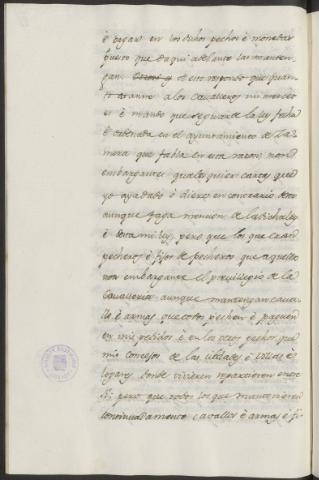 è pagar en los dichos pechos è monedas
puesto que daqui adelante las manten-
gan. à esto respondo que quan-
to atanne à los Cavalleros mi merced
es è mando que se guarde la ley fecha
è ordenada en el ayuntamiento de Za-
mora que fabla en esta razon non
embargantes qualesquier cartas que
yo aya dado è diere en contrario desto
aunque faga mencion de la dicha ley
è desta mi ley, pero que los que eran
pecheros, è fijos de pecheros que aquellos
non embargante el previllegio de la
Cavalleria aunque mantengan cava-
llo è armas que estos pechen è paguen
en mis pedidos è en los otros pechos que
mis concejos de las cibdades è villas è
logares donde vivieren repartieren entre
si; pero que todos los que mantovieren
continuadamente cavallos è armas è fi-